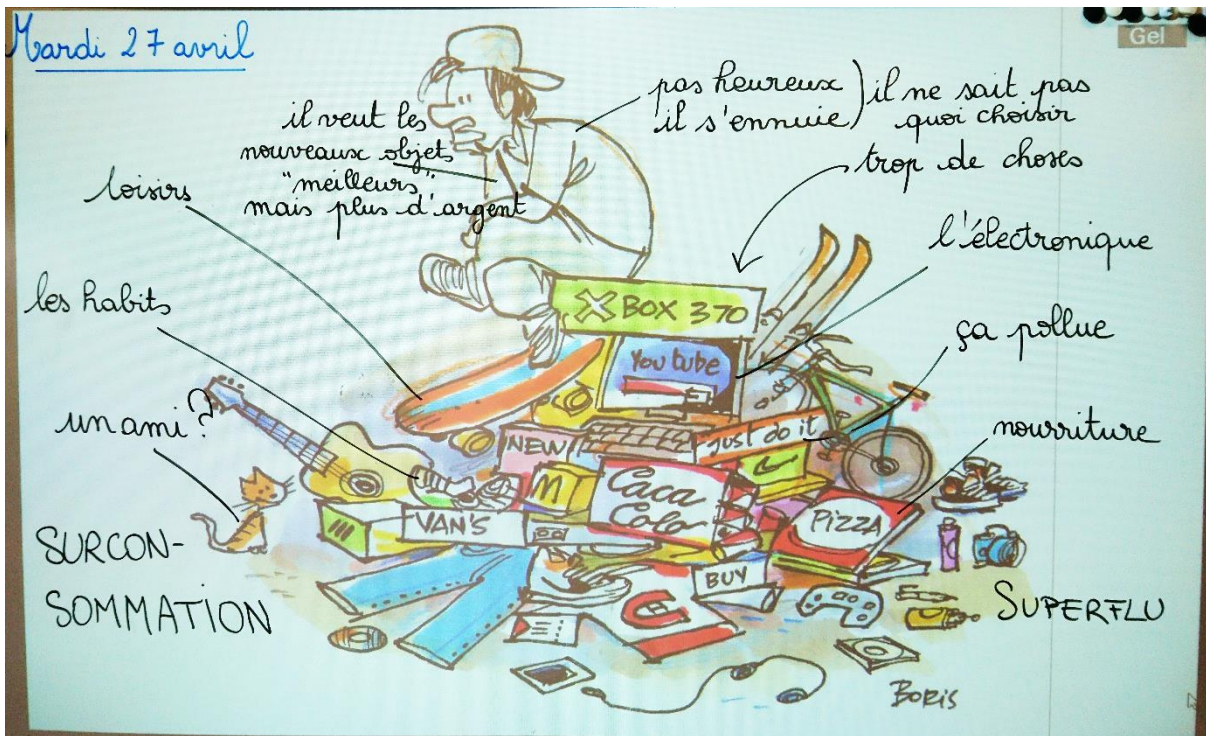 Mardi 27 avril
Gel
il veut les
nouveaux objets
"meilleurs"
mais plus d'argent
pas heureux
il s'ennuie
il ne sait pas
quoi choisir
trop de choses
loisirs
l'électronique
les habits
ça pollue
un ami?
nourriture
XBOX 370
YouTube
NEW
just do it
M
Caca
Cola
VAN'S
PIZZA
BUY
SURCON-
SOMMATION
SUPERFLU
BORIS